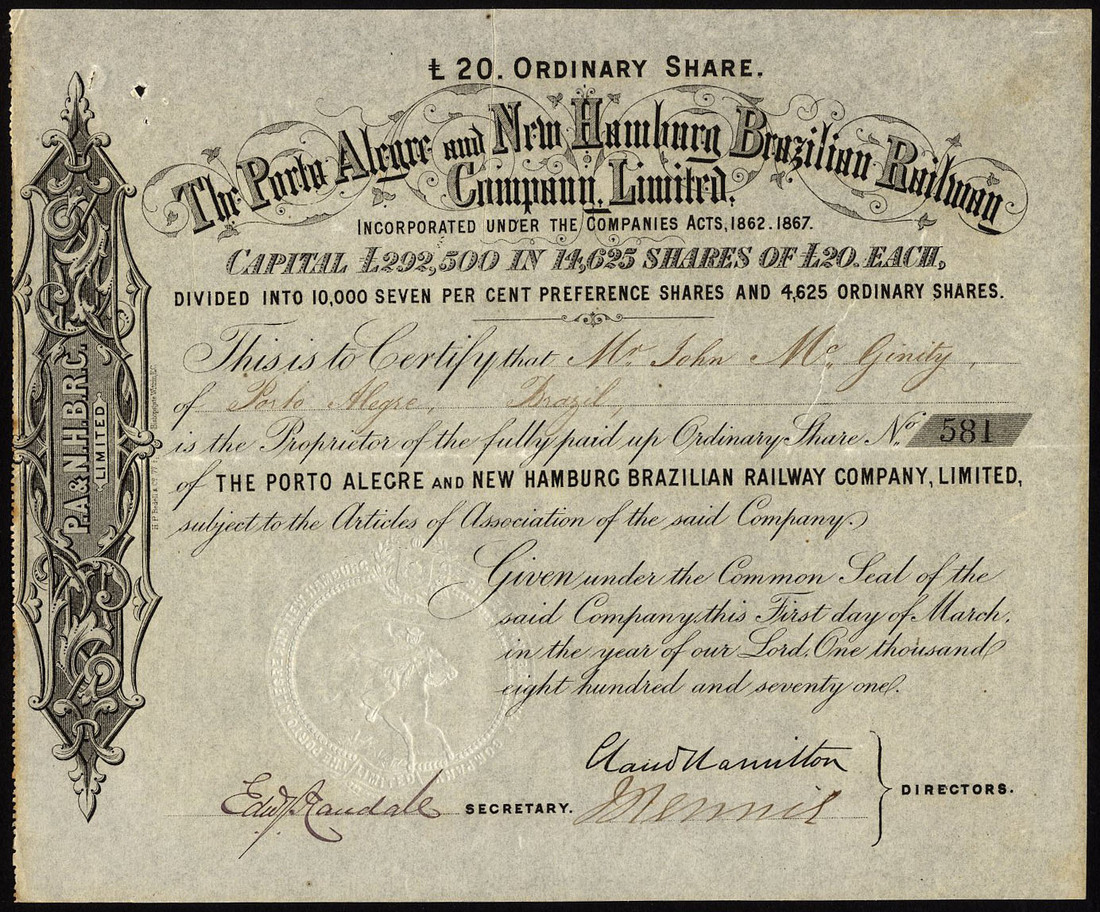 Ł 20. ORDINARY SHARE.
The Porto Alegre and New Hamburg Brazilian Railway
Company, Limited.
INCORPORATED UNDER THE COMPANIES ACTS, 1862. 1867.
CAPITAL Ł292,500 IN 14,625 SHARES OF Ł20. EACH,
DIVIDED INTO 10,000 SEVEN PER CENT PREFERENCE SHARES AND 4,625 ORDINARY SHARES.
This is to Certify that Mr John Mc Ginity,
of Porto Alegre, Brazil,
is the Proprietor of the fully paid up Ordinary Share No. 581
of THE PORTO ALEGRE AND NEW HAMBURG BRAZILIAN RAILWAY COMPANY, LIMITED,
subject to the Articles of Association of the said Company.
Given under the Common Seal of the
said Company, this First day of March,
in the year of our Lord, One thousand
eight hundred and seventy one.
Claud Hamilton
DIRECTORS.
SECRETARY.
P.A. & N.H.B.R.C.
LIMITED